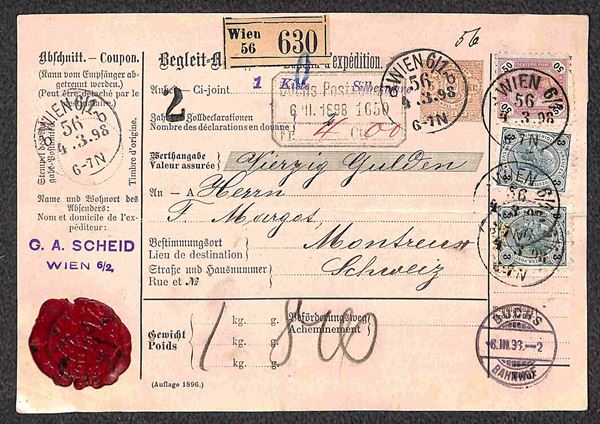 56
Wien
56
630
Abschnitt. — Coupon.
(Kann vom Empfänger ab-
getrennt werden.)
(Peut être détaché par le
WIEN 6/1
56 b
4.3.98
6-7N
Timbre d'origine.
Name und Wohnort des
Absenders:
Nom et domicile de l'ex-
péditeur:
G. A. SCHEID
WIEN 6/2
Begleit-A
d'expédition.
Ci-joint
1 Kiste
2
Zolldeclarationen
Nombre des déclarations en douane
1650
WIEN 6/1
56 b
4.3.98
6-7N
Werthangabe
Valeur assurée
Vierzig Gulden
An — A
Herrn
F. Margot,
Bestimmungsort
Lieu de destination
Montreux
Straße und Hausnummer
Rue et №
Schweiz
Gewicht
Poids
kg. g.
kg. g.
kg. g.
1 800
Beförderungsweg
Acheminement
(Auflage 1896.)
50 50
WIEN 6/2
56
4.3.98
6-7N
3 3
3 3
BUCHS
BAHNHOF